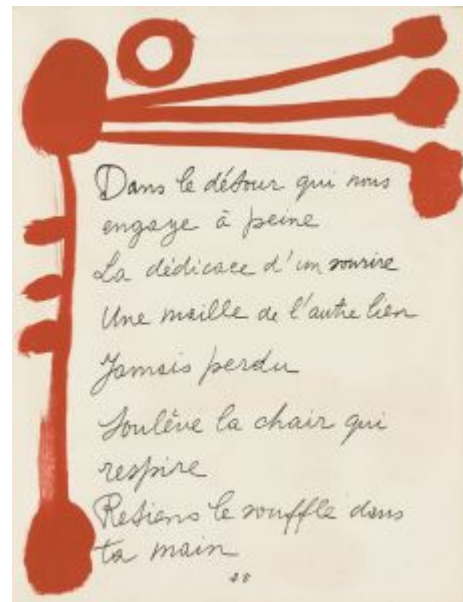 Dans le détour qui nous
engage à peine
La dédicace d'un sourire
Une maille de l'autre lien
Jamais perdu
Soulève la chair qui
respire
Retiens le souffle dans
ta main
48